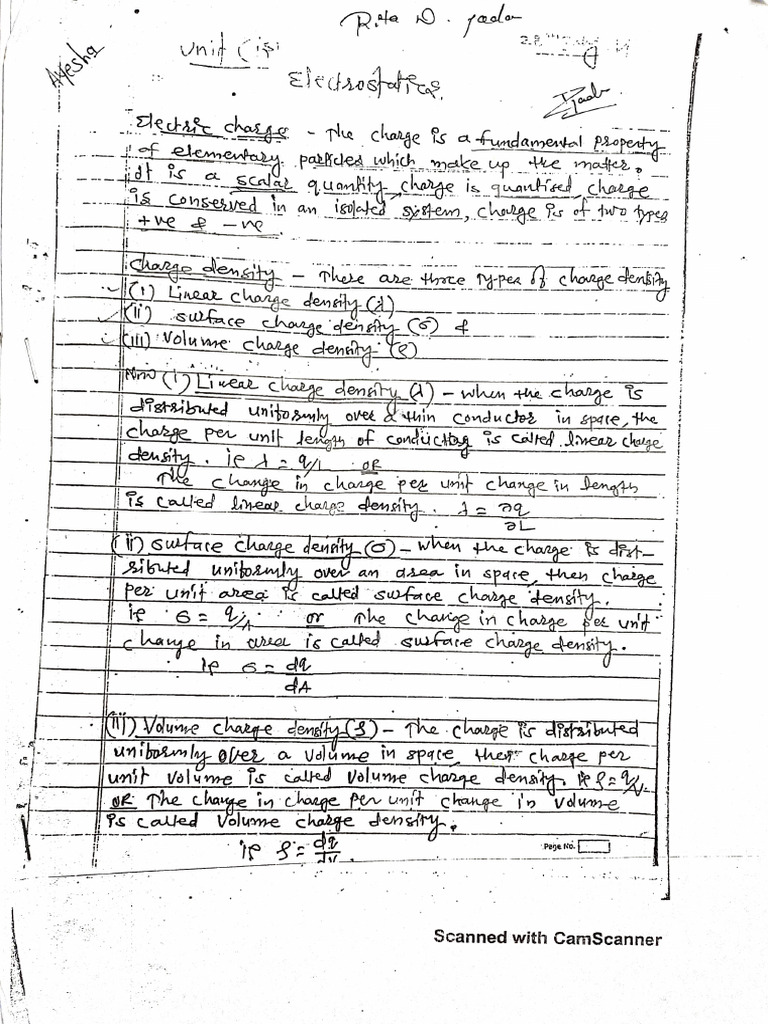 Ayesha
Unit (i
Electrostatics.
Electric charge - The charge is a fundamental property
of elementary particles which make up the matter.
It is a scalar quantity, charge is quantised, charge
is conserved in an isolated system, charge is of two types
+ve & -ve
Charge density - There are three types of charge density
(i) Linear charge density (λ)
(ii) surface charge density (σ) &
(iii) Volume charge density (ρ)
Now (i) Linear charge density (λ) - when the charge is
distributed uniformly over a thin conductor in space, the
charge per unit length of conducting is called linear charge
density. ie λ = q/L OR
The change in charge per unit change in length
is called linear charge density. λ = ∂q/∂L
(ii) surface charge density (σ) - when the charge is dist-
ributed uniformly over an area in space, then charge
per unit area is called surface charge density.
ie σ = q/A or The change in charge per unit
change in area is called surface charge density.
ie σ = dq/dA
(iii) Volume charge density (ρ) - The charge is distributed
uniformly over a volume in space, then charge per
unit volume is called volume charge density. ie ρ = q/V
OR The change in charge per unit change in volume
is called volume charge density.
ie ρ = dq/dV.
Page No.
Scanned with CamScanner